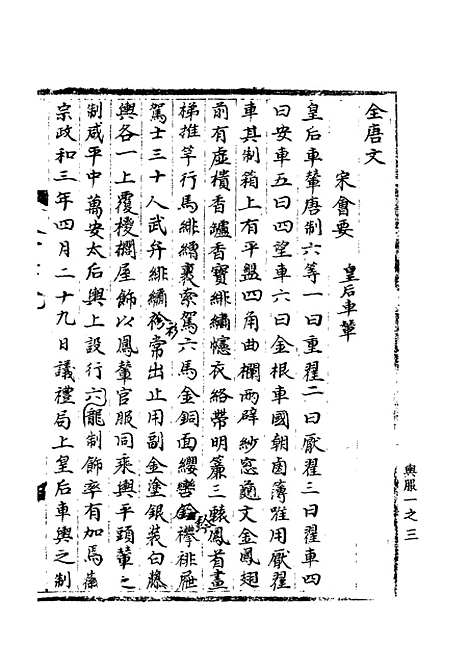 全唐文
宋會要
皇后車輦
皇后車輦唐制六等一曰重翟二曰厭翟三曰翟車四
曰安車五曰四望車六曰金根車國朝鹵簿唯用厭翟
車其制箱上有平盤四角曲欄兩壁紗窓龜文金鳳翅
前有虛樻香爐香寶緋繡幰衣絡帶明簾三轅鳳首畫
梯推竿行馬緋繒裹索駕六馬金銅面纓轡鈴攀緋屜
駕士三十人武弁緋繡衫常出止用副金塗銀裝白藤
輿各一上覆椶櫚屋飾以鳳輦官服同乘輿平頭輦之
制咸平中萬安太后輿上設行六龍制飾率有加焉
宗政和三年四月二十九日議禮局上皇后車輿之制
輿服一之三